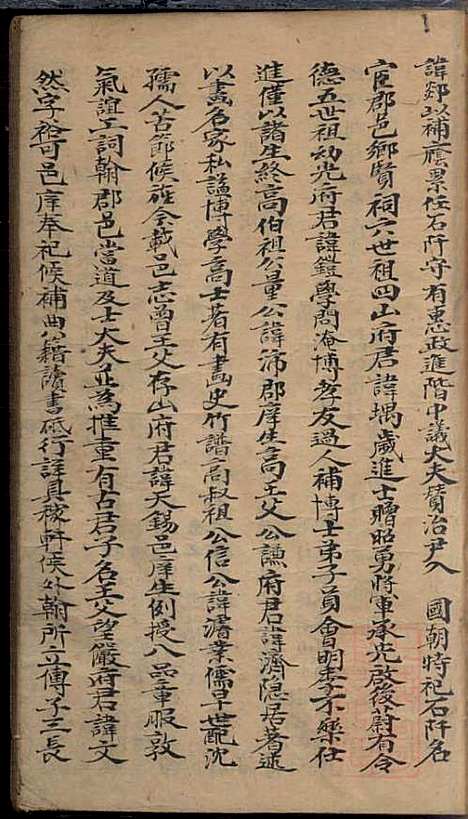 諱郯以補廕累任石阡守有惠政進階中議大夫贊治尹入 國朝特祀石阡名
宦郡邑鄉賢祠六世祖四山府君諱堣歲進士贈昭勇將軍承先啟後蔚有令
德五世祖幼光府君諱鎧學問淹博孝友過人補博士弟子員會明季不樂仕
進僅以諸生終高伯祖公量公諱沛郡庠生高王父公謙府君諱濟隱居著述
以畫名家私謚博學高士著有畫史竹譜高叔祖公信公諱濳業儒早世配沈
孺人苦節候旌今載邑志曾王父存山府君諱天錫邑庠生例授八品章服敦
氣誼工詞翰郡邑當道及士大夫並為推重有古君子名王父望嚴府君諱文
然字裕可邑庠奉祀候補典籍讀書砥行詳具稼軒侯外翰所立傳子三長